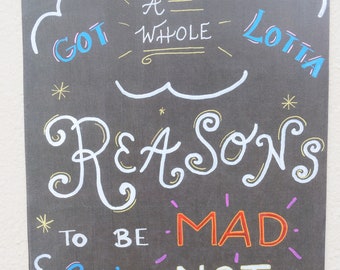 GOT A WHOLE LOTTA
REASONS
TO BE MAD
NOT